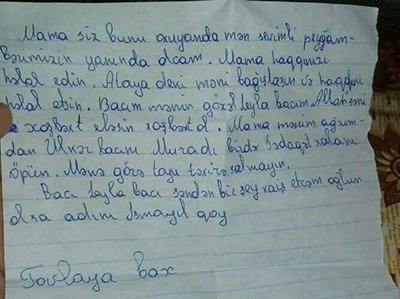 Mama siz bunu oxuyanda mən sevimli peyğəm-
bərimizin yanında olcam. Mama haqqınızı
həlal edin. Ataya deki məni bağışlasın və haqqını
həlal etsin. Bacım mənim gözəl Leyla bacım Allah səni
xoşbəxt eləsin xoşbəxt ol. Mama mənim ağzım-
dan Ülkər bacımı Muradı birdə Sədaqət xalamı
öpün. Mənə görə toyu təxirə salmayın.
Bacı Leyla bacı səndən bir şey xaiş etcəm oğlun
olsa adını İsmayıl qoy
Tovlaya bax